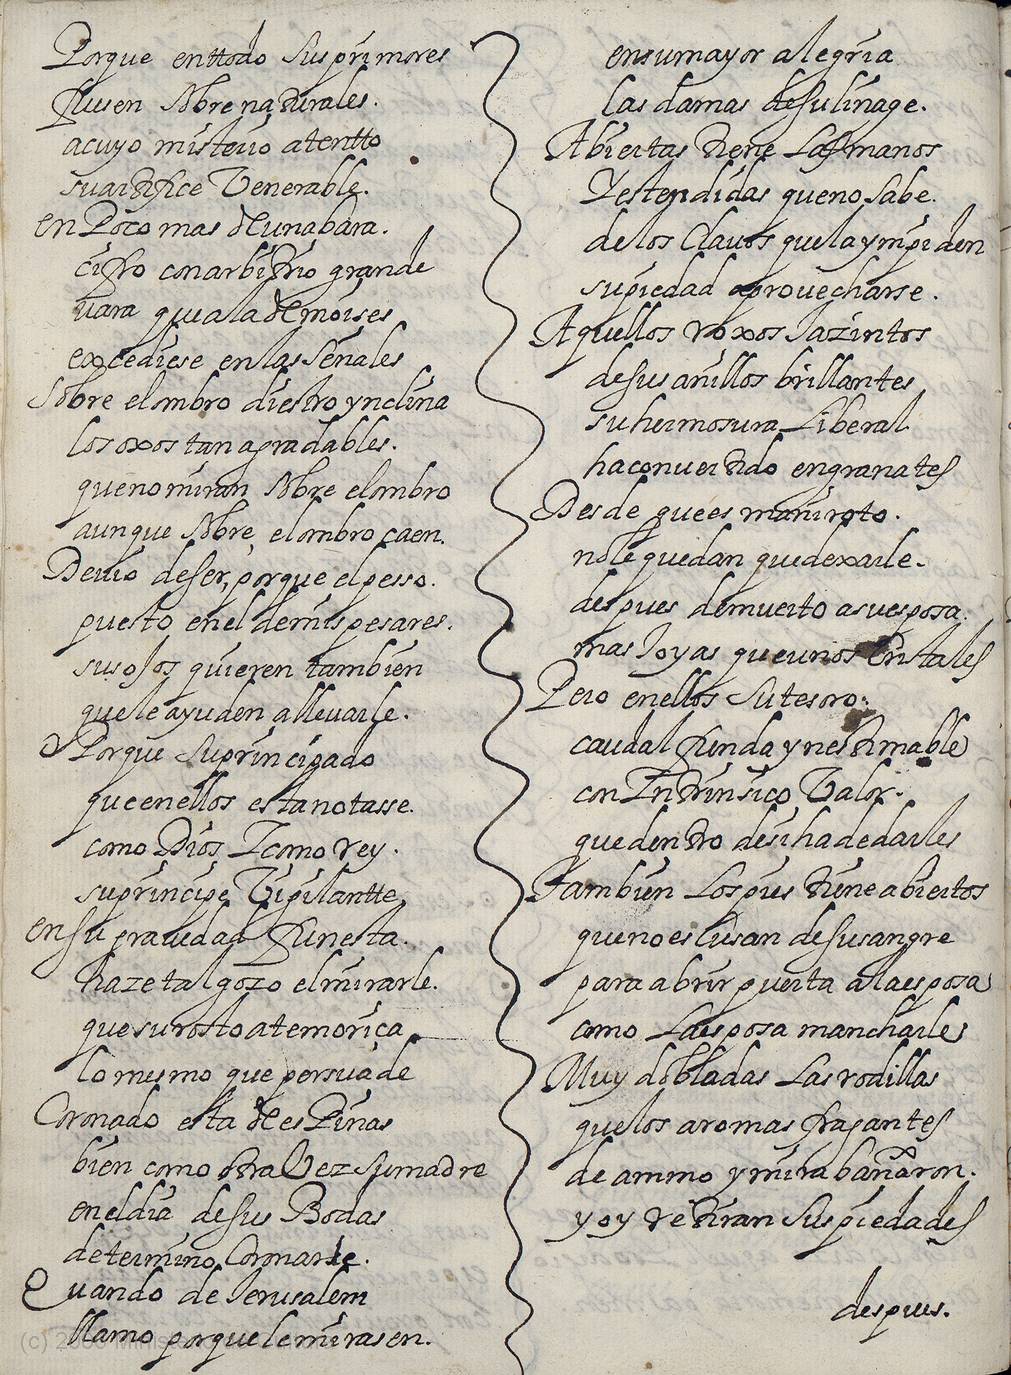 Porque enttodo Sus primores
fuesen Sobre naturales.
acuyo misterio atentto
su artifice Venerable.
en Poco mas de una bara.
cifro con arbitrio grande
vara que a la de moises
excediese en las Señales
Sobre el ombro diestro ynclina
los oxos tan agradables.
que no miran Sobre el ombro
aunque Sobre el ombro caen.
Deuio de ser, porque el pesso.
puesto en el de mis pesares.
sus ojos quieren tambien
que le ayuden a lleuarle.
Porque Su principado
que en ellos esta notasse.
como Dios Y como rey.
su principe Vigilantte
en Su grauedad funesta.
haze tal gozo el mirarle.
que su rosto atemoriça
lo mesmo que persuade
Coronado esta de esPinas
bien como otra Vez su madre
en el dia de sus Bodas
determino Coronarle.
Quando de Jerusalem
llamo porque le mirasen.
en su mayor alegria
las damas de su linage.
Abiertas tiene Las manos
Y estendidas que no Sabe.
de los Clauos que la ympiden
su piedad aprouecharse.
Aquellos roxos Jazintos
de sus anillos brillantes
su hermosura Liberal
ha conuertido en granates
Desde que es maniroto.
no le quedan que dexarle.
despues de muerto a su esposa.
mas Joyas que unos Cristales
Pero en ellos Su tesoro.
caudal funda ynestimable
con Intrinsico Valor.
que dentro de si ha de darles
Tambien Los pies tiene abiertos
que no escusan de su sangre
para abrir puerta a la esposa
como La esposa mancharles
Muy dobladas Las rodillas
que los aromas fragantes
de ammo y mirra bañaron.
y oy retiran Sus piedades
despues.